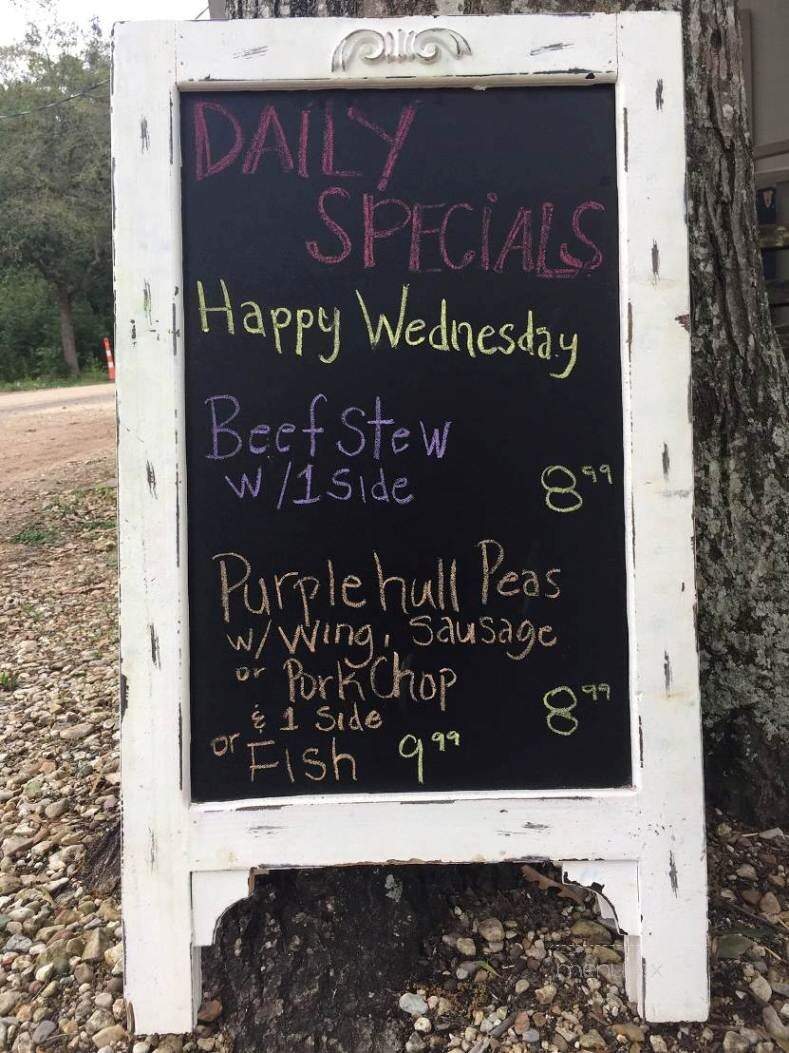 DAILY
SPECIALS
Happy Wednesday
Beef Stew
w/1 Side 8.99
Purplehull Peas
w/ Wing, Sausage
or Pork Chop
& 1 Side 8.99
or Fish 9.99